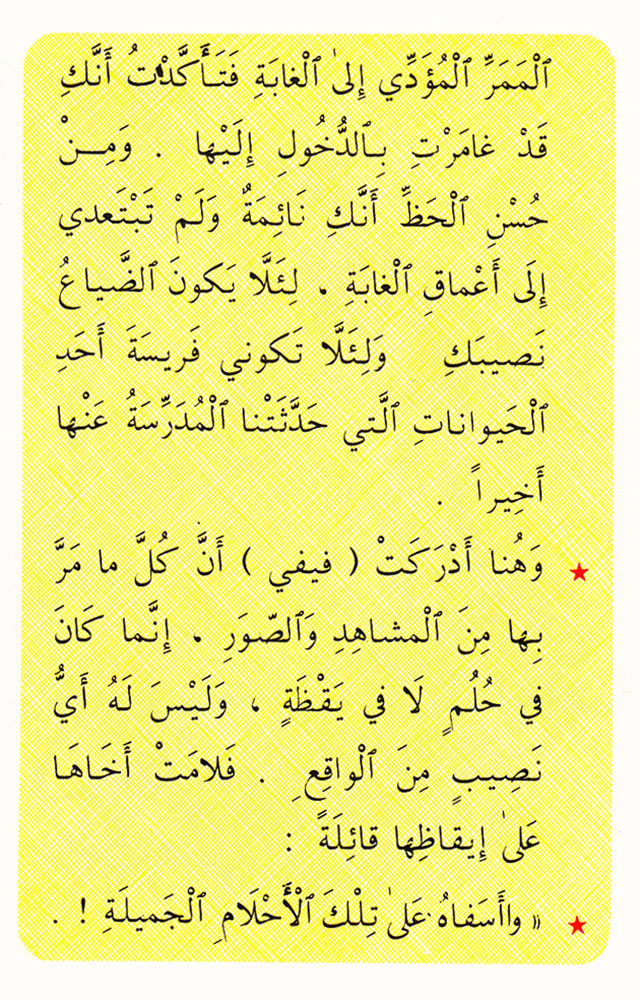 ٱلْمَمَرِّ ٱلْمُؤَدِّي إِلىٰ ٱلْغابَةِ فَتَأَكَّدْتُ أَنَّكِ
قَدْ غامَرْتِ بِٱلدُّخُولِ إِلَيْها . وَمِنْ
حُسْنِ ٱلْحَظِّ أَنَّكِ نَائِمَةٌ وَلَمْ تَبْتَعدي
إِلَى أَعْماقِ ٱلْغابَةِ . لِئَلَّا يَكونَ ٱلضَّياعُ
نَصيبَكِ وَلِئَلَّا تَكوني فَريسَةَ أَحَدِ
ٱلْحَيواناتِ ٱلَّتي حَدَّثَتْنا ٱلْمُدَرِّسَةُ عَنْها
أَخِيراً .
★ وَهُنا أَدْرَكَتْ ( فيفي ) أَنَّ كُلَّ ما مَرَّ
بِها مِنَ ٱلْمشاهِدِ وَٱلصّوَرِ . إِنَّما كَانَ
في حُلُمٍ لَا في يَقْظَةٍ ، وَلَيْسَ لَهُ أَيُّ
نَصِيبٍ مِنَ ٱلْواقِعِ . فَلامَتْ أَخَاهَا
عَلىٰ إِيقاظِها قائِلَةً :
★ « واأَسَفاهُ عَلىٰ تِلْكَ ٱلْأَحْلَامِ ٱلْجَميلَةِ ! .